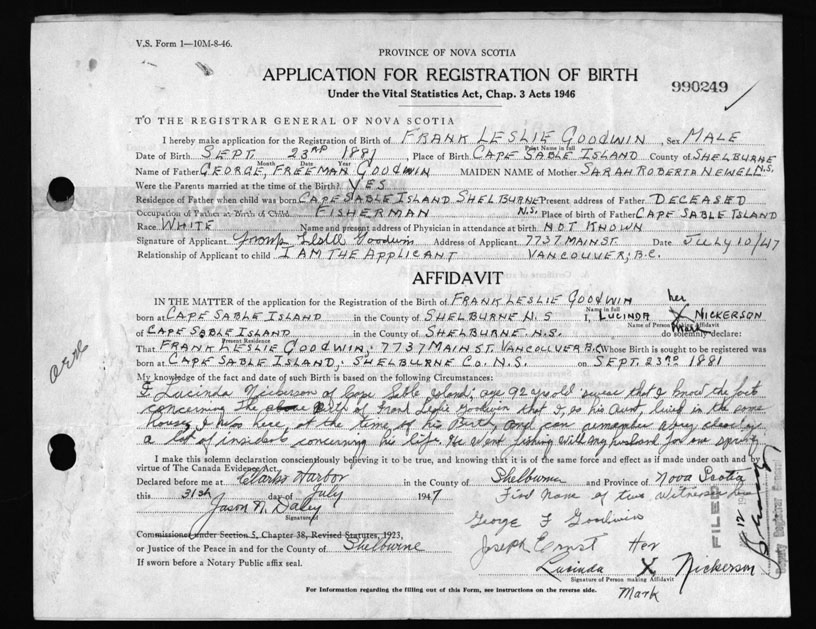 V.S. Form 1—10M-8-46.
PROVINCE OF NOVA SCOTIA
APPLICATION FOR REGISTRATION OF BIRTH
990249
Under the Vital Statistics Act, Chap. 3 Acts 1946
TO THE REGISTRAR GENERAL OF NOVA SCOTIA
I hereby make application for the Registration of Birth of FRANK LESLIE GOODWIN, Sex MALE
Print Name in full
Date of Birth SEPT. 23RD 1881, Place of Birth CAPE SABLE ISLAND County of SHELBURNE N.S.
Month Day Year
Name of Father GEORGE, FREEMAN GOODWIN MAIDEN NAME of Mother SARAH ROBERTA NEWELL
Were the Parents married at the time of the Birth? YES
Residence of Father when child was born CAPE SABLE ISLAND SHELBURNE N.S. Present address of Father DECEASED
Occupation of Father at Birth of Child FISHERMAN Place of birth of Father CAPE SABLE ISLAND
Race WHITE Name and present address of Physician in attendance at birth NOT KNOWN
Signature of Applicant Frank Leslie Goodwin Address of Applicant 7737 MAIN ST. Date JULY 10/47
Relationship of Applicant to child I AM THE APPLICANT VANCOUVER, B.C.
AFFIDAVIT
IN THE MATTER of the application for the Registration of the Birth of FRANK LESLIE GOODWIN her
Name in full
born at CAPE SABLE ISLAND in the County of SHELBURNE N.S I, LUCINDA X NICKERSON
Name of Person making Affidavit
of CAPE SABLE ISLAND in the County of SHELBURNE N.S. mark do solemnly declare:
Present Residence
That FRANK LESLIE GOODWIN; 7737 MAIN ST. VANCOUVER B.C. Whose Birth is sought to be registered was
born at CAPE SABLE ISLAND, SHELBURNE CO. N.S. on SEPT. 23RD 1881
My knowledge of the fact and date of such Birth is based on the following Circumstances:
I Lucinda Nickerson of Cape Sable Island; age 92 yrs old swear that I know the facts
concerning the above Birth of Frank Leslie Goodwin that I, as his Aunt, lived in the same
house, I was here, at the time of his Birth, and can remember very clearly
a lot of insidents concerning his life. He went fishing with my husband for one spring
I make this solemn declaration conscientiously believing it to be true, and knowing that it is of the same force and effect as if made under oath and by
virtue of The Canada Evidence Act.
Declared before me at Clarks Harbor in the County of Shelburne and Province of Nova Scotia
this 31st day of July 1947
Jason N. Daley
Signature of
George F Goodwin
Commissioner under Section 5, Chapter 38, Revised Statutes, 1923,
or Justice of the Peace in and for the County of Shelburne
Joseph Ernst Her
If sworn before a Notary Public affix seal.
Lucinda X Nickerson
Signature of Person making Affidavit
Mark
For Information regarding the filling out of this Form, see instructions on the reverse side.
FILED